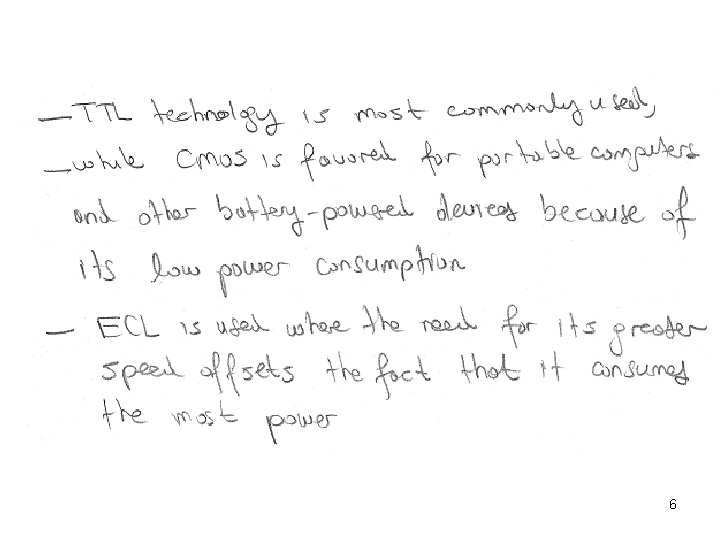 — TTL technology is most commonly used,
— while CMOS is favored for portable computers
and other battery-powered devices because of
its low power consumption
— ECL is used where the need for its greater
speed offsets the fact that it consumes
the most power
6